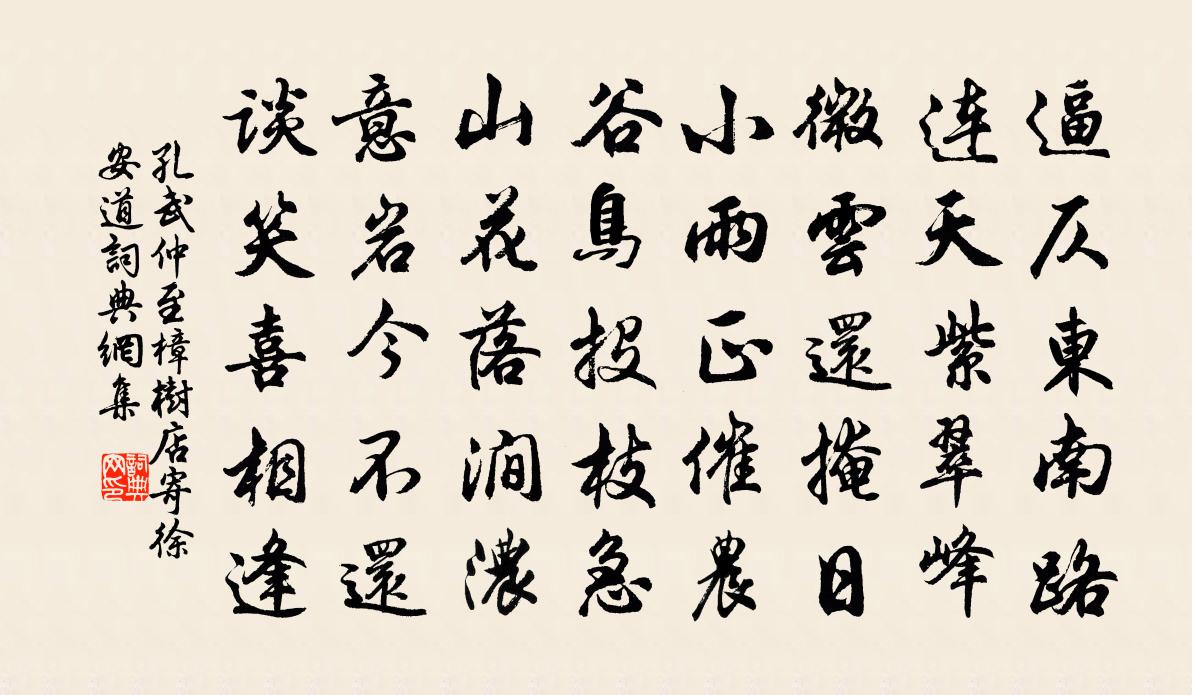 逼仄東南路
連天紫翠峰
微雲還掩日
小雨正催農
谷鳥投枝急
山花落澗濃
意岩今不還
谈笑喜相逢
孔武仲至樟樹店寄徐
安道詞典網集
詞典
网印